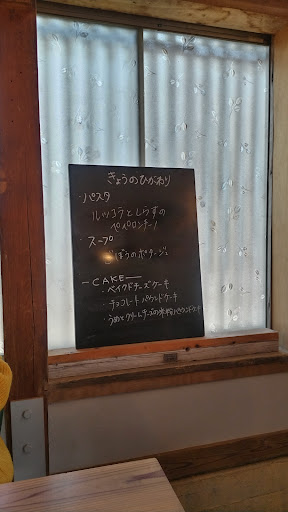 きょうのひがわり
・パスタ
ルッコラとしらすの
ペペロンチーノ
・スープ
ごぼうのポタージュ
ーCAKEー
・ベイクドチーズケーキ
・チョコレートパウンドケーキ
・うめとクリームチーズの米粉パウンドケーキ